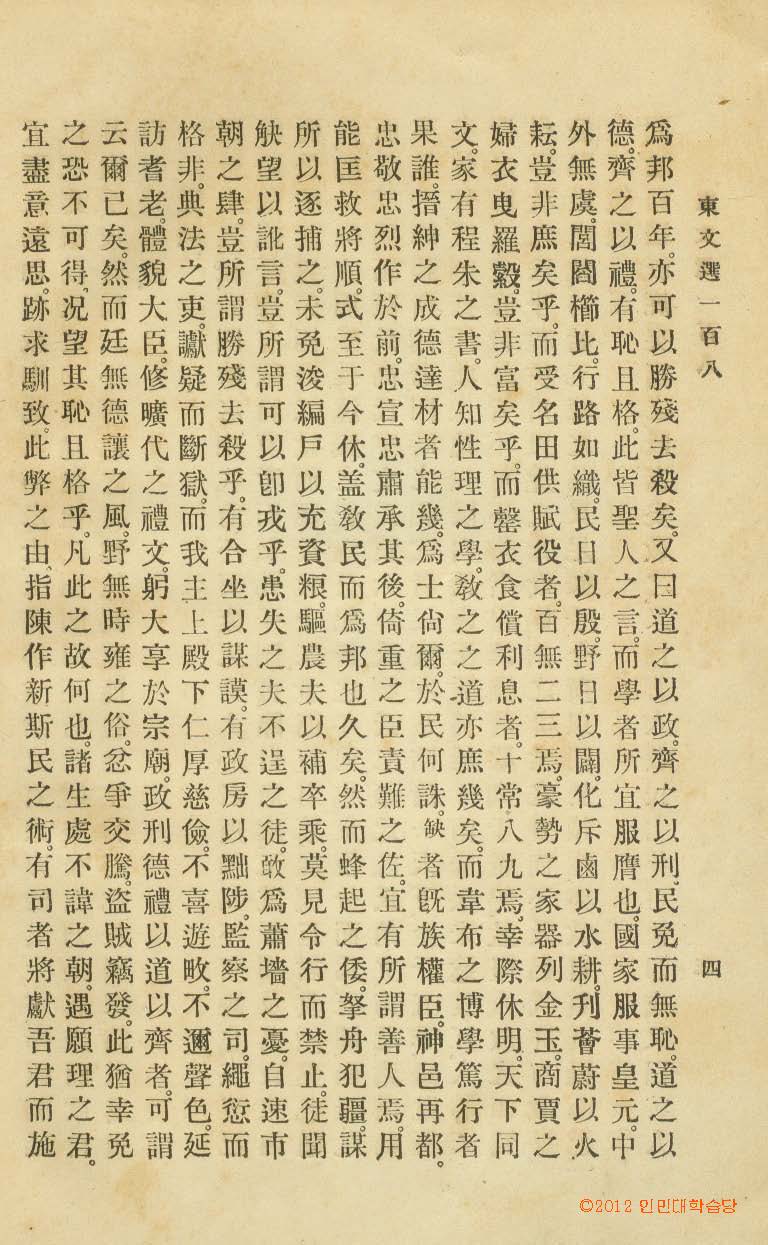 東文選一百八 四
爲邦百年。亦可以勝殘去殺矣。又曰道之以政。齊之以刑。民免而無恥。道之以
德。齊之以禮。有恥且格。此皆聖人之言。而學者所宜服膺也。國家服事皇元。中
外無虞。閭閻櫛比。行路如織。民日以殷。野日以闢。化斥鹵以水耕。刋薈蔚以火
耘。豈非庶矣乎。而受名田供賦役者。百無二三焉。豪勢之家器列金玉。商賈之
婦衣曳羅縠。豈非富矣乎。而罄衣食償利息者。十常八九焉。幸際休明。天下同
文。家有程朱之書。人知性理之學。敎之之道亦庶幾矣。而韋布之博學篤行者
果誰。搢紳之成德達材者能幾。爲士尙爾。於民何誅。缺者旣族權臣。神邑再都。
忠敬忠烈作於前。忠宣忠肅承其後。倚重之臣責難之佐。宜有所謂善人焉。用
能匡救將順。式至于今休。盖敎民而爲邦也久矣。然而蜂起之倭。拏舟犯疆。謀
所以逐捕之。未免浚編戶以充資粮。驅農夫以補卒乘。莫見令行而禁止。徒聞
觖望以訛言。豈所謂可以卽戎乎。患失之夫不逞之徒。敢爲蕭墻之憂。自速市
朝之肆。豈所謂勝殘去殺乎。有合坐以謀謨。有政房以黜陟。監察之司。繩愆而
格非。典法之吏。讞疑而斷獄。而我主上殿下仁厚慈儉。不喜遊畋。不邇聲色。延
訪耆老。體貌大臣。修曠代之禮文。躬大享於宗廟。政刑德禮以道以齊者。可謂
云爾已矣。然而廷無德讓之風。野無時雍之俗。忿爭交騰。盜賊竊發。此猶幸免
之恐不可得。况望其恥且格乎。凡此之故何也。諸生處不諱之朝。遇願理之君。
宜盡意遠思。跡求馴致。此弊之由。指陳作新斯民之術。有司者將獻吾君而施
©2012 인민대학습당